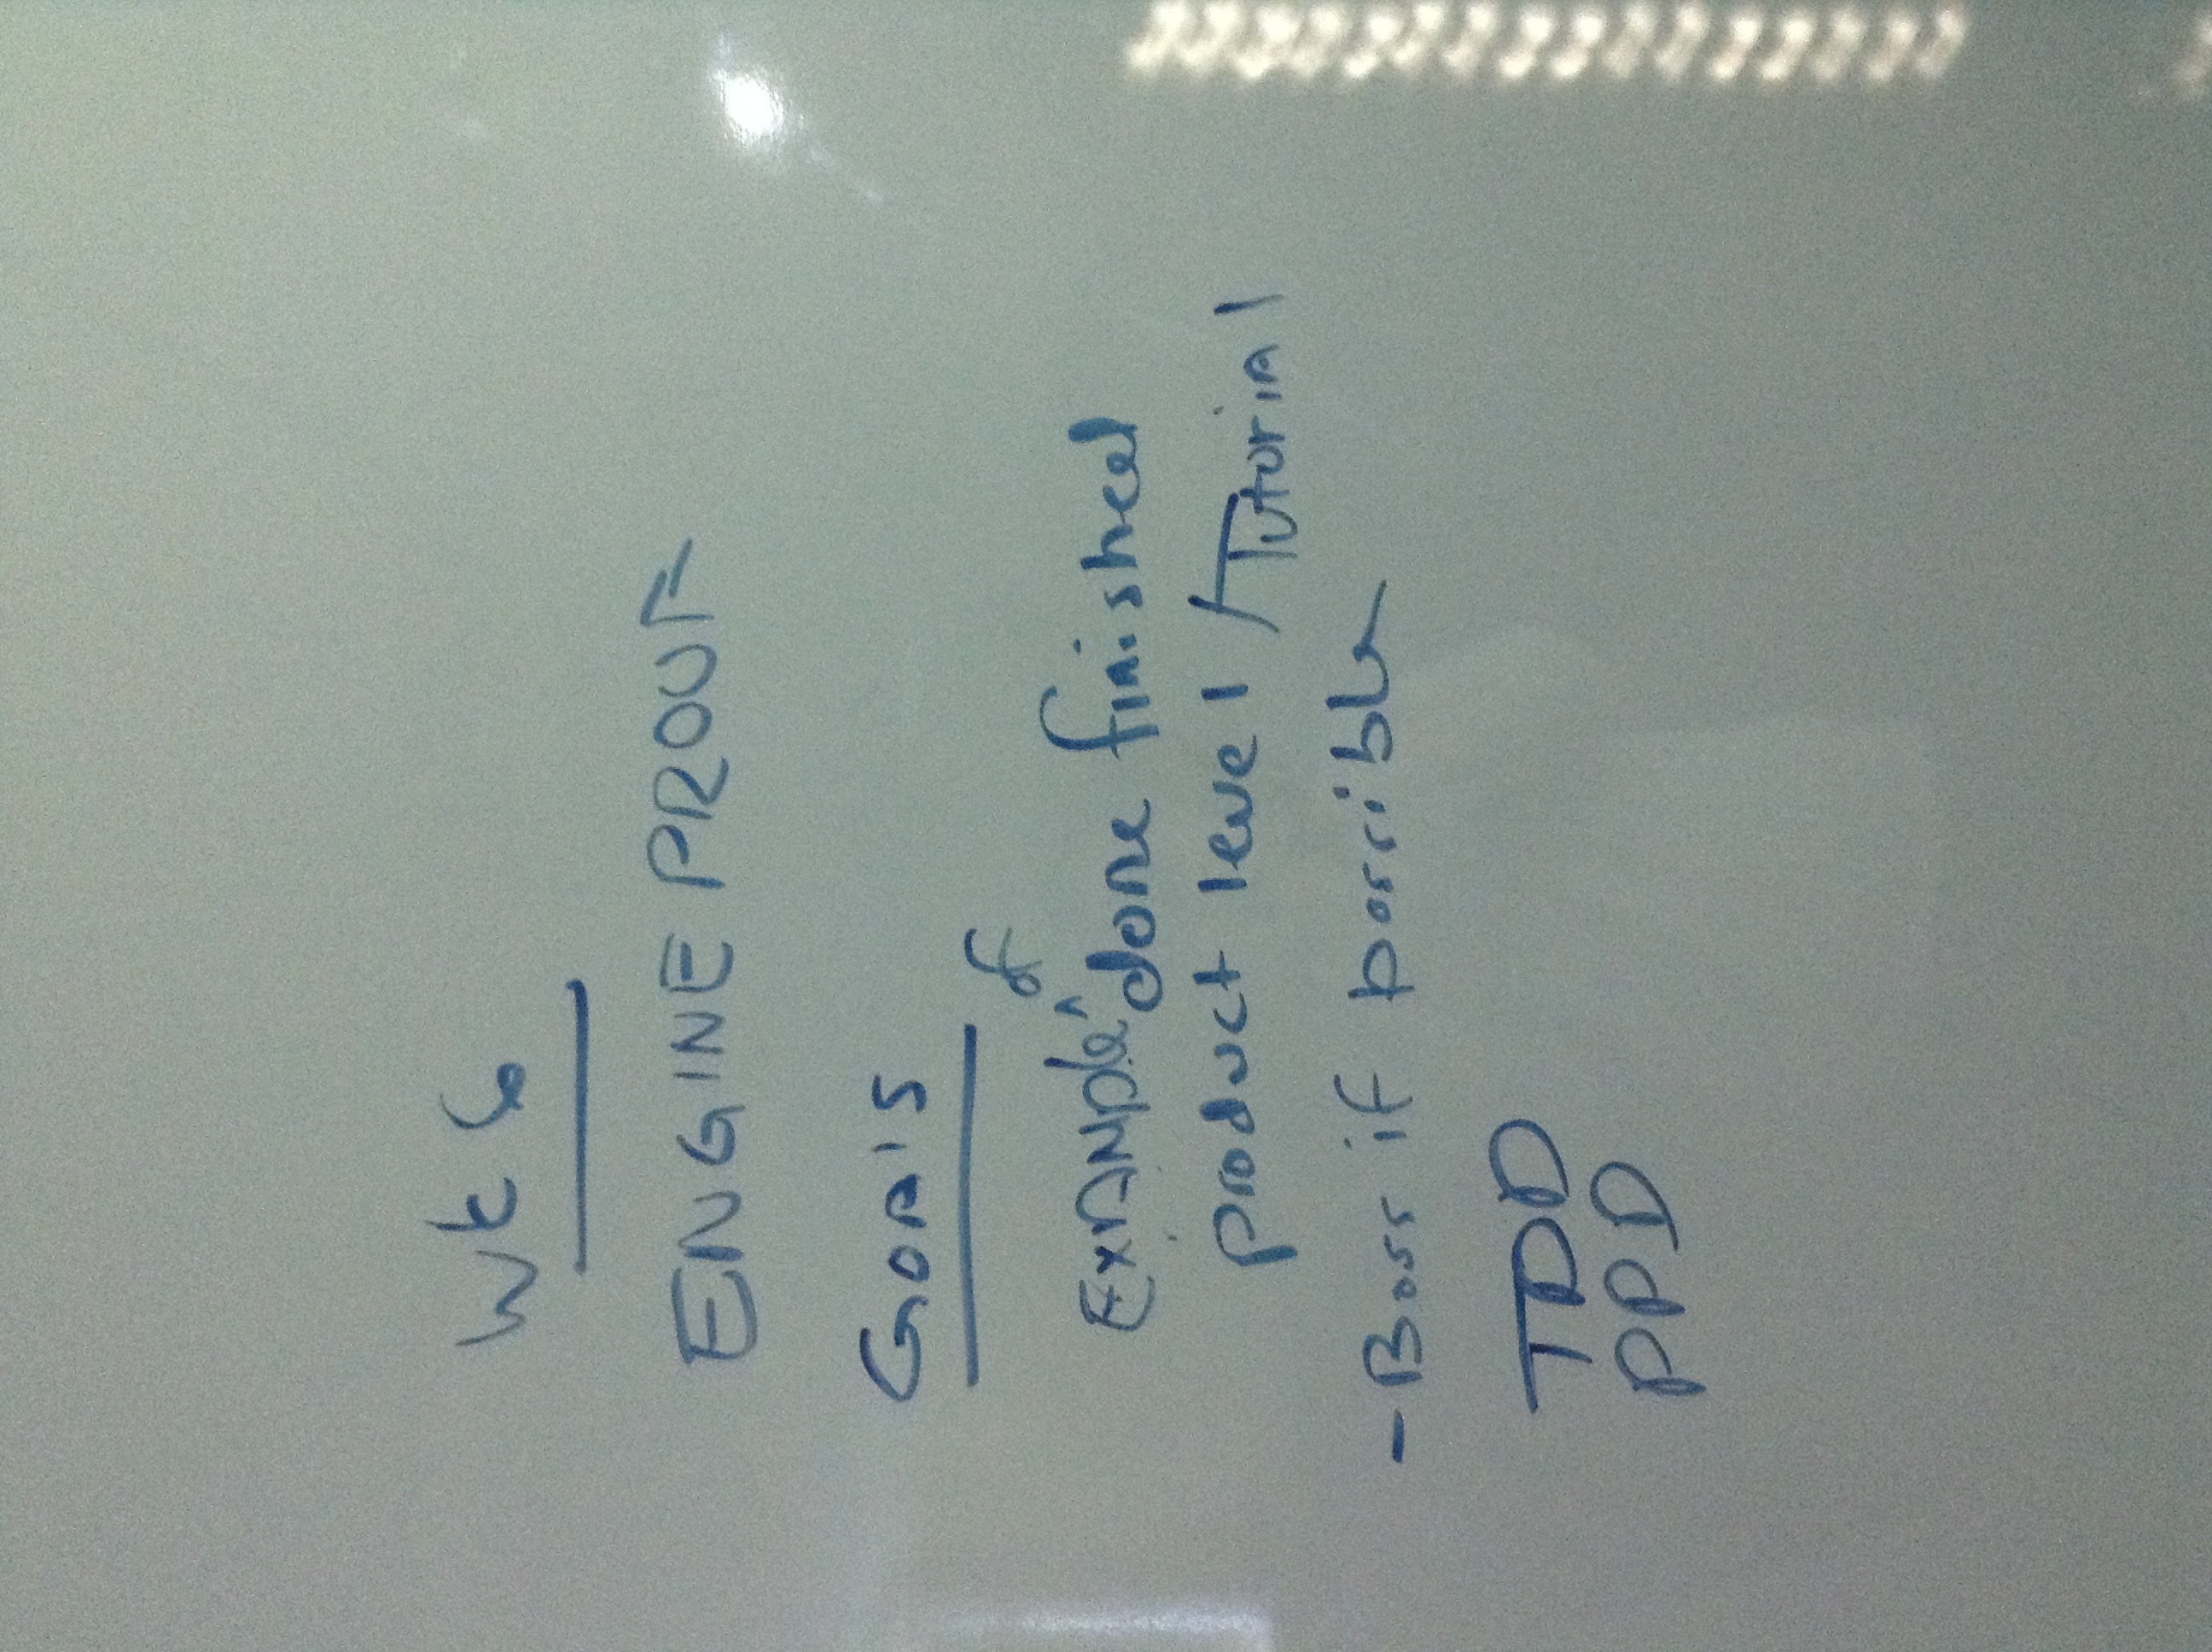 Wk 6
ENGINE PROOF
GOAlS
EXAMPle ^of done finished
product level / Tutorial
- Boss if possible
TDD
PPD